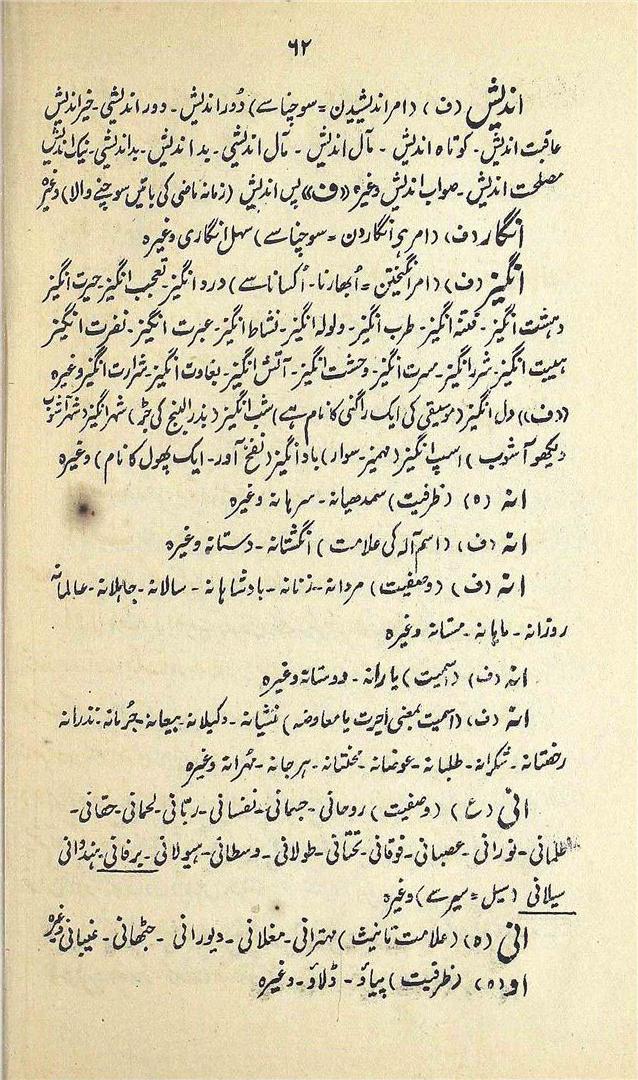 ۶۲
اندیش (ف) (امر اندیشیدن = سوچنا سے) دُور اندیش۔ دور اندیشی۔ خیر اندیش
عاقبت اندیش۔ کوتاہ اندیش۔ مآل اندیش۔ مآل اندیشی۔ بد اندیش۔ بد اندیشی۔ نیک اندیش
مصلحت اندیش۔ صواب اندیش وغیرہ ((ف)) پس اندیش (زمانہ ماضی کی باتیں سوچنے والا) وغیرہ
انگار (ف) (امر انگاردن = سوچنا سے) سہل انگاری وغیرہ
انگیز (ف) (امر انگیختن = اُبھارنا۔ اُکسانا سے) درد انگیز۔ تعجب انگیز۔ حیرت انگیز
دہشت انگیز۔ فتنہ انگیز۔ طرب انگیز۔ ولولہ انگیز۔ نشاط انگیز۔ عبرت انگیز۔ نفرت انگیز
ہیبت انگیز۔ شرر انگیز۔ مسرت انگیز۔ وحشت انگیز۔ آتش انگیز۔ بغاوت انگیز۔ شرارت انگیز وغیرہ
((ف)) دل انگیز (موسیقی کی ایک راگنی کا نام ہے) شب انگیز (بذر البنج کی جڑ) شہر انگیز (شہر آشوب
دیکھو آشوب) اسپ انگیز (مہمیز۔ سوار) باد انگیز (نفخ آور۔ ایک پھول کا نام) وغیرہ
انہ (ہ) (ظرفیت) سمدھیانہ۔ سرہانہ وغیرہ
انہ (ف) (اسم آلہ کی علامت) انگشتانہ۔ دستانہ وغیرہ
انہ (ف) (وصفیت) مردانہ۔ زنانہ۔ بادشاہانہ۔ سالانہ۔ جاہلانہ۔ عالمانہ
روزانہ۔ ماہانہ۔ مستانہ وغیرہ
انہ (ف) (اسمیت) یارانہ۔ دوستانہ وغیرہ
انہ (ف) (اسمیت بمعنی اُجرت یا معاوضہ) منشیانہ۔ وکیلانہ۔ بیعانہ۔ جُرمانہ۔ نذرانہ
رخصتانہ۔ شکرانہ۔ طلبانہ۔ عوضانہ۔ مختانہ۔ ہرجانہ۔ مُہرانہ وغیرہ
انی (ع) (وصفیت) روحانی۔ جسمانی۔ نفسانی۔ ربّانی۔ لحمانی۔ حقانی۔
ظلمانی۔ نورانی۔ عصبانی۔ فوقانی۔ تحتانی۔ طولانی۔ وسطانی۔ ہیولانی۔ یرقانی۔ ہندوانی
سیلانی (سیل = سیر سے) وغیرہ
انی (ہ) (علامت تانیث) مہترانی۔ مغلانی۔ دیورانی۔ جٹھانی۔ غیبانی وغیرہ
او (ہ) (ظرفیت) پیاؤ۔ ڈلاؤ۔ وغیرہ